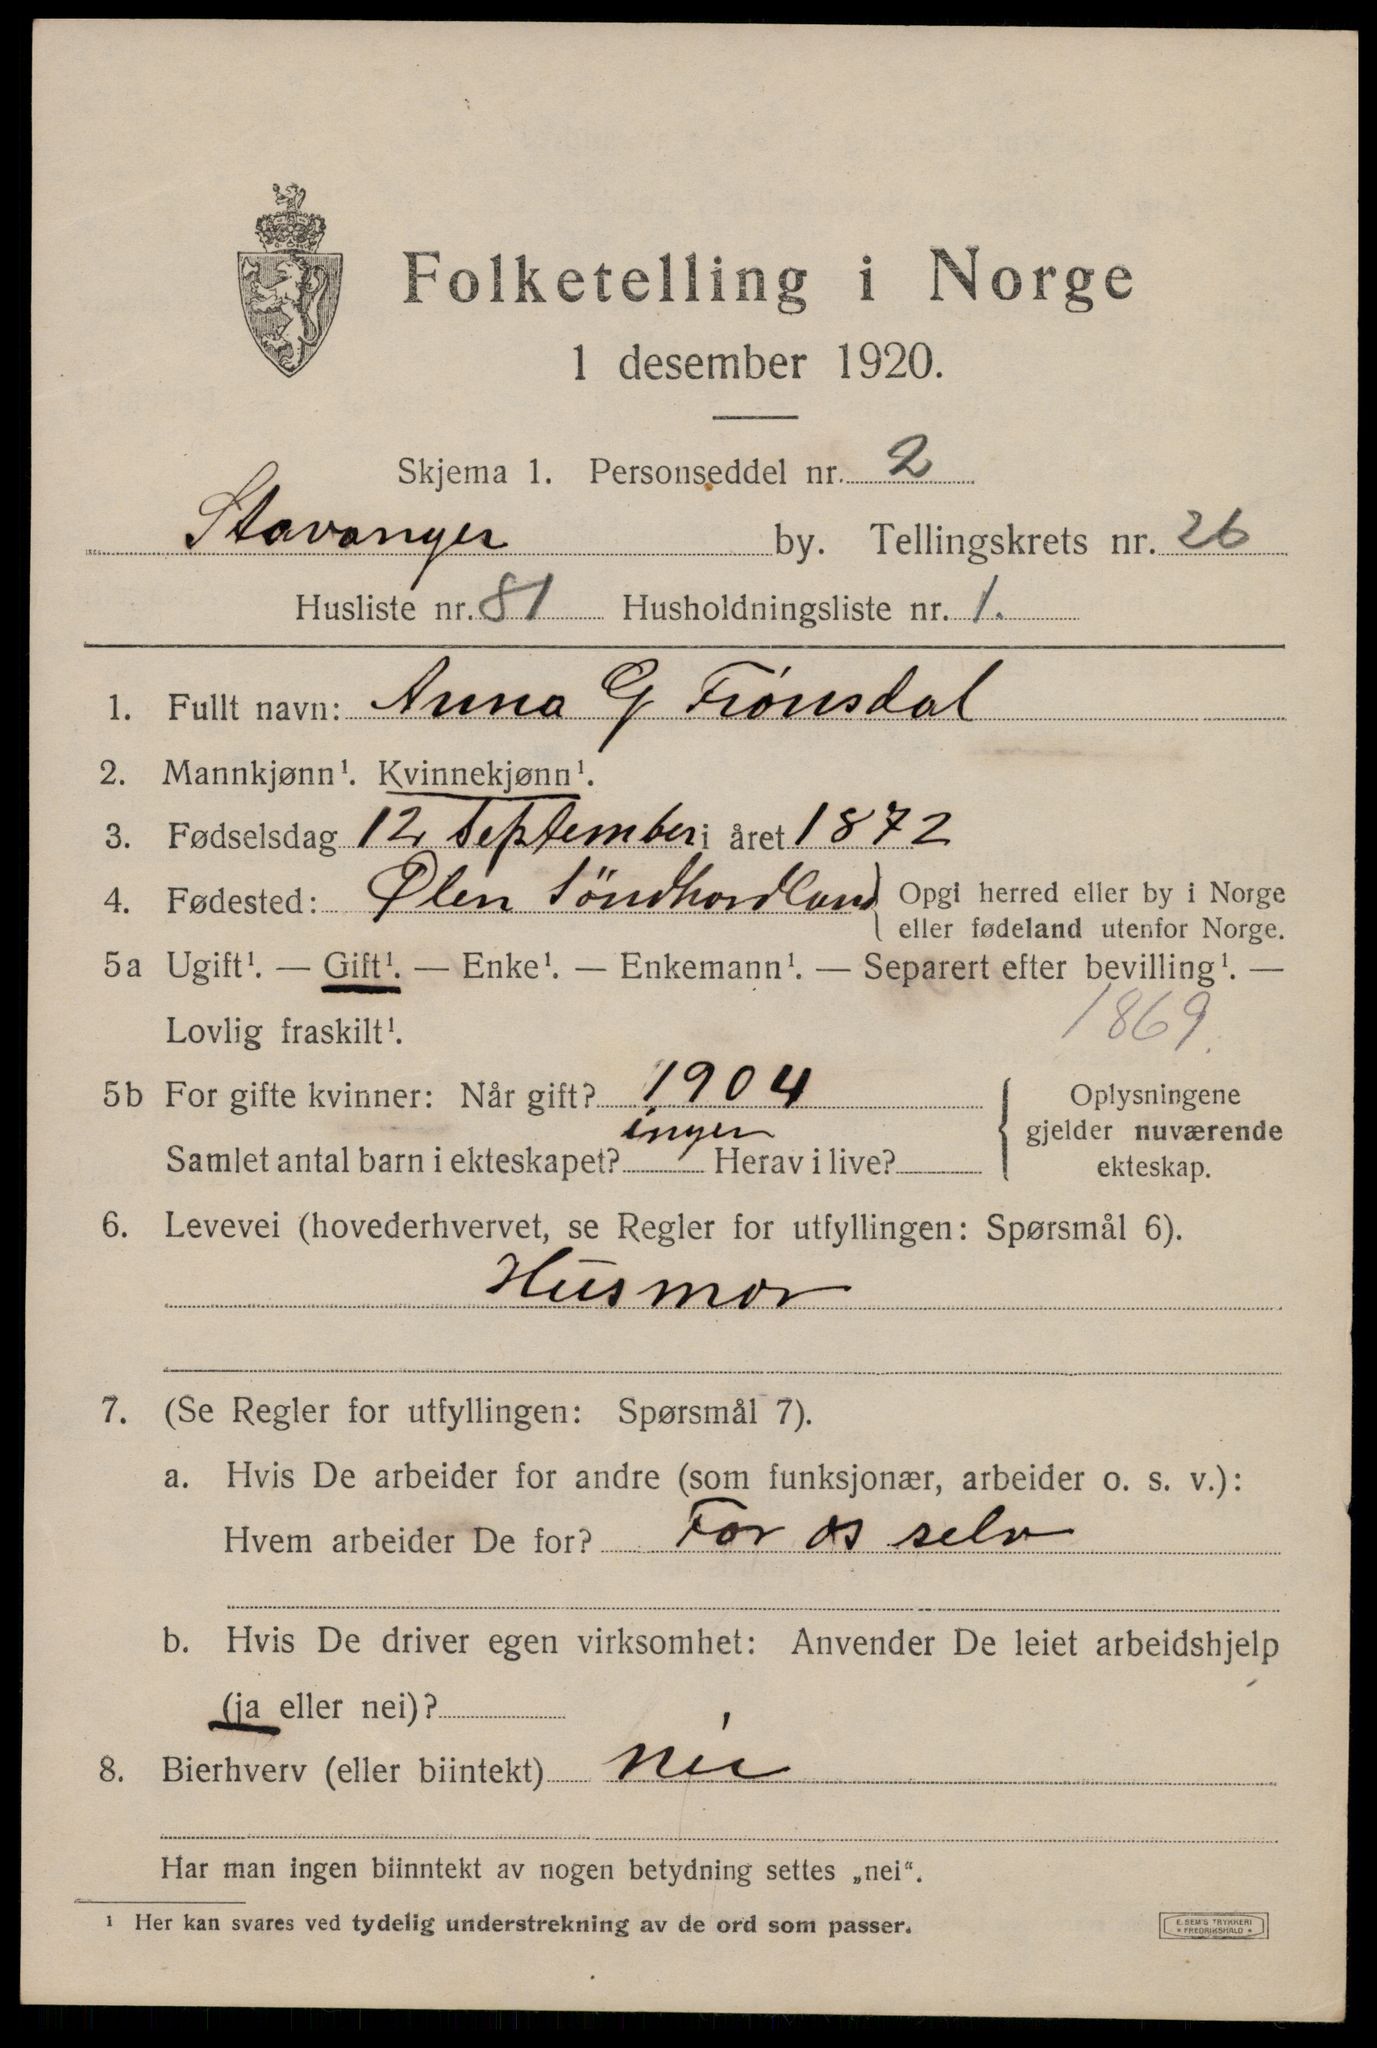 Folketelling i Norge
1 desember 1920.
Skjema 1. Personseddel nr. 2
Stavanger by. Tellingskrets nr. 26
Husliste nr. 81 Husholdningsliste nr. 1.
1. Fullt navn: Anna G Frönsdal
2. Mannkjønn¹. Kvinnekjønn¹.
3. Fødselsdag 12 September i året 1872
4. Fødested: Ølen Söndhordland Opgi herred eller by i Norge
eller fødeland utenfor Norge.
5a Ugift¹. — Gift¹. — Enke¹. — Enkemann¹. — Separert efter bevilling¹. —
Lovlig fraskilt¹. 1869.
5b For gifte kvinner: Når gift? 1904 Oplysningene
gjelder nuværende
ekteskap.
Samlet antal barn i ekteskapet? ingen Herav i live?
6. Levevei (hovederhvervet, se Regler for utfyllingen: Spørsmål 6).
Husmor
7. (Se Regler for utfyllingen: Spørsmål 7).
a. Hvis De arbeider for andre (som funksjonær, arbeider o. s. v.):
Hvem arbeider De for? For os selv
b. Hvis De driver egen virksomhet: Anvender De leiet arbeidshjelp
(ja eller nei)?
8. Bierhverv (eller biintekt) nei
Har man ingen biinntekt av nogen betydning settes „nei“.
¹ Her kan svares ved tydelig understrekning av de ord som passer.
E. SEM'S TRYKKERI
* FREDRIKSHALD *